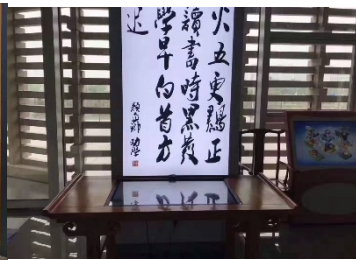 火五更鷄正
讀書時黑髮
學早白首方
遲